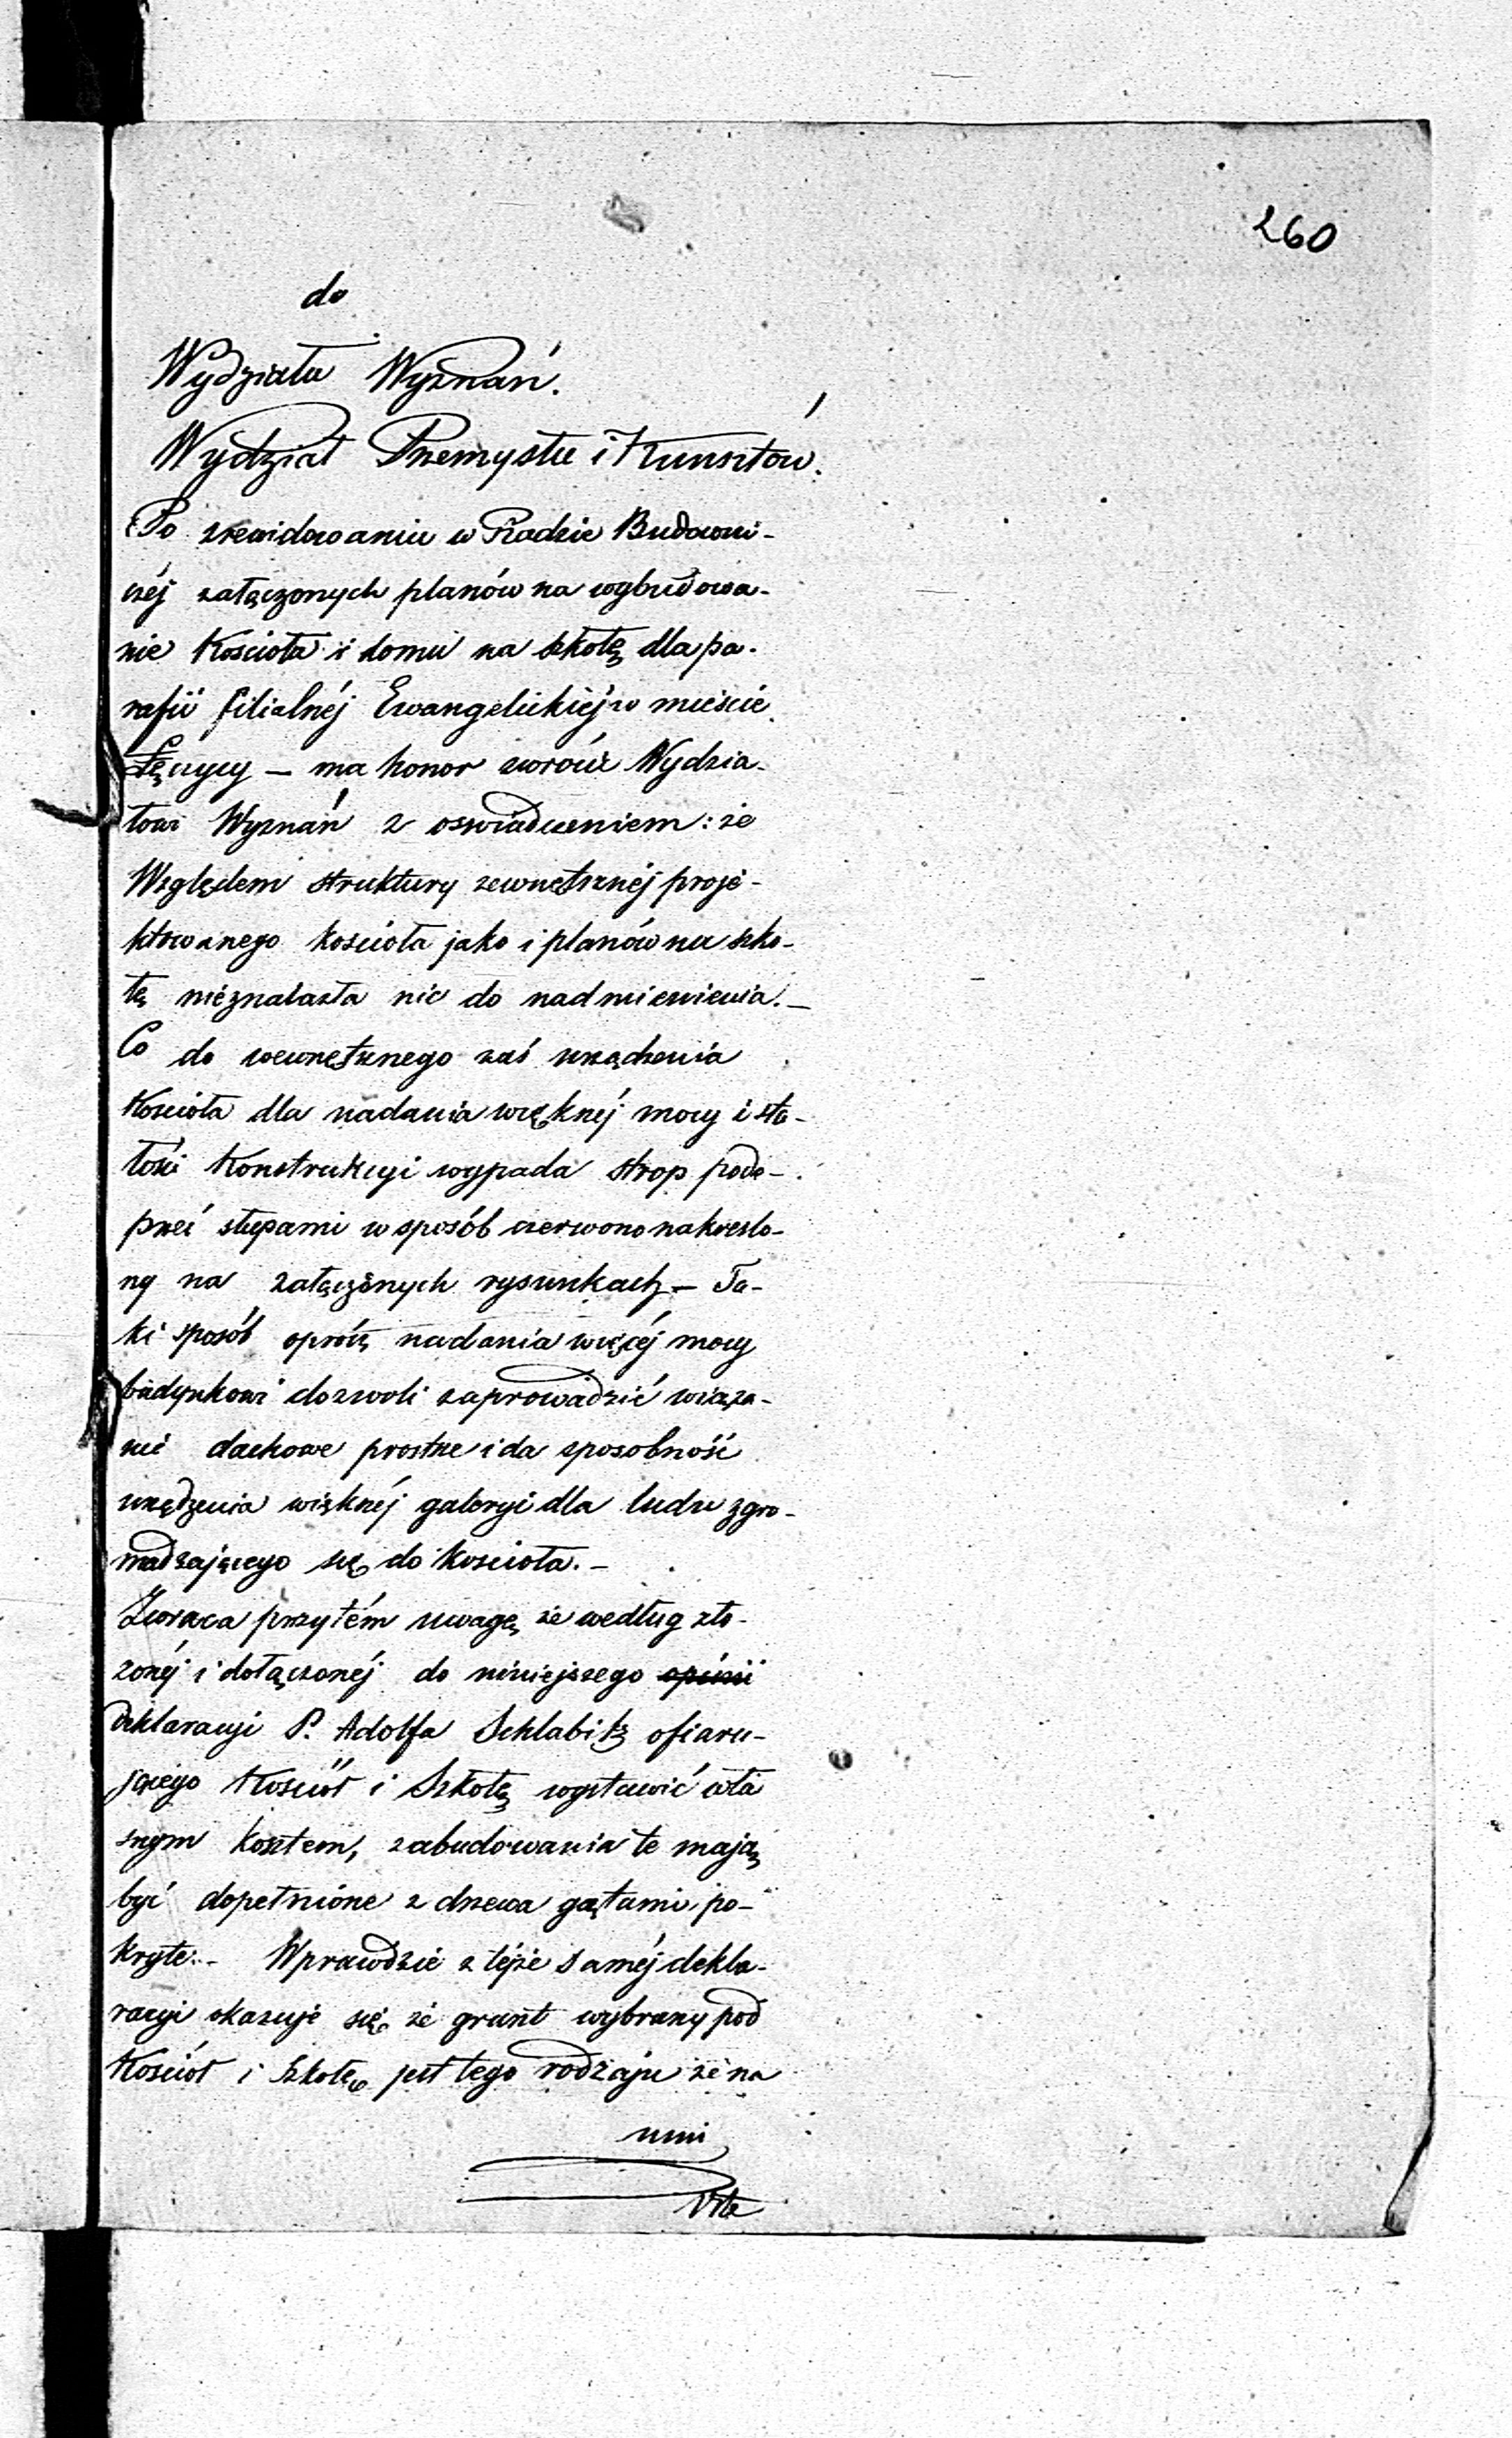 260
do
Wydziału Wyznań.
Wydział Przemysłu i Kunsztów.
Po zrewidowaniu w Radzie Budowni-
czéj załączonych planów na wybudowa-
nie Kościoła i domu na szkołę dla pa-
rafii filialnéj Ewangelickiéj w mieście
Łęczycy — ma honor zwrócić Wydzia-
łowi Wyznań z oświadczeniem: że
Względem struktury zewnętrznéj proje-
ktowanego kościoła jako i planów na szko-
łę nieznalazła nic do nadmienienia. —
Co do wewnętrznego zaś urządzenia
Kościoła dla nadania większéj mocy i sta-
łości Konstrukcyi wypada strop pode-
przeć słupami w sposób czerwono nakreślo-
ny na załączonych rysunkach — Ta-
ki sposób oprócz nadania więcéj mocy
budynkowi dozwoli zaprowadzić wiąza-
nie dachowe prostsze i da sposobność
urządzenia większéj galeryi dla ludu zgro-
madzającego się do kościoła. —
Zwraca przytém uwagę że według zło-
żonéj i dołączonéj do niniejszego opinii
deklaracyi P. Adolfa Schlabitz ofiaru-
jącego Kościół i Szkołę wystawić wła
snym kosztem, zabudowania te mają
być dopełnione z drzewa gątami po-
kryte. — Wprawdzie z téjże saméj dekla-
racyi okazuje się że grunt wybrany pod
Kościół i Szkołę jest tego rodzaju że na
nim